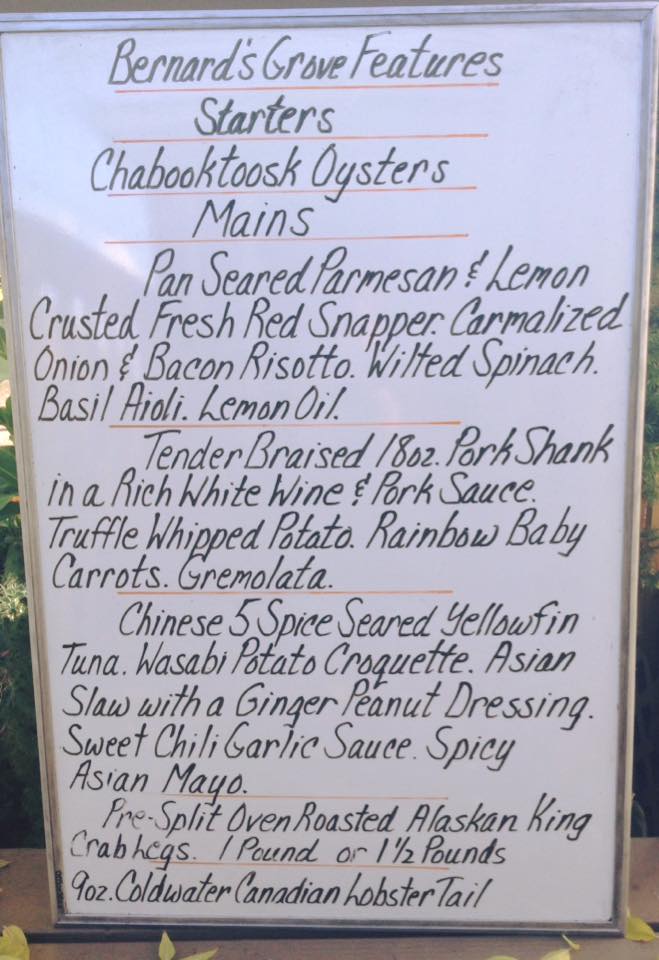 Bernard's Grove Features
Starters
Chabooktoosk Oysters
Mains
Pan Seared Parmesan & Lemon
Crusted Fresh Red Snapper. Carmalized
Onion & Bacon Risotto. Wilted Spinach.
Basil Aioli. Lemon Oil.
Tender Braised 18oz. Pork Shank
in a Rich White Wine & Pork Sauce.
Truffle Whipped Potato. Rainbow Baby
Carrots. Gremolata.
Chinese 5 Spice Seared Yellowfin
Tuna. Wasabi Potato Croquette. Asian
Slaw with a Ginger Peanut Dressing.
Sweet Chili Garlic Sauce. Spicy
Asian Mayo.
Pre-Split Oven Roasted Alaskan King
Crab Legs. 1 Pound or 1 1/2 Pounds
9oz. Coldwater Canadian Lobster Tail